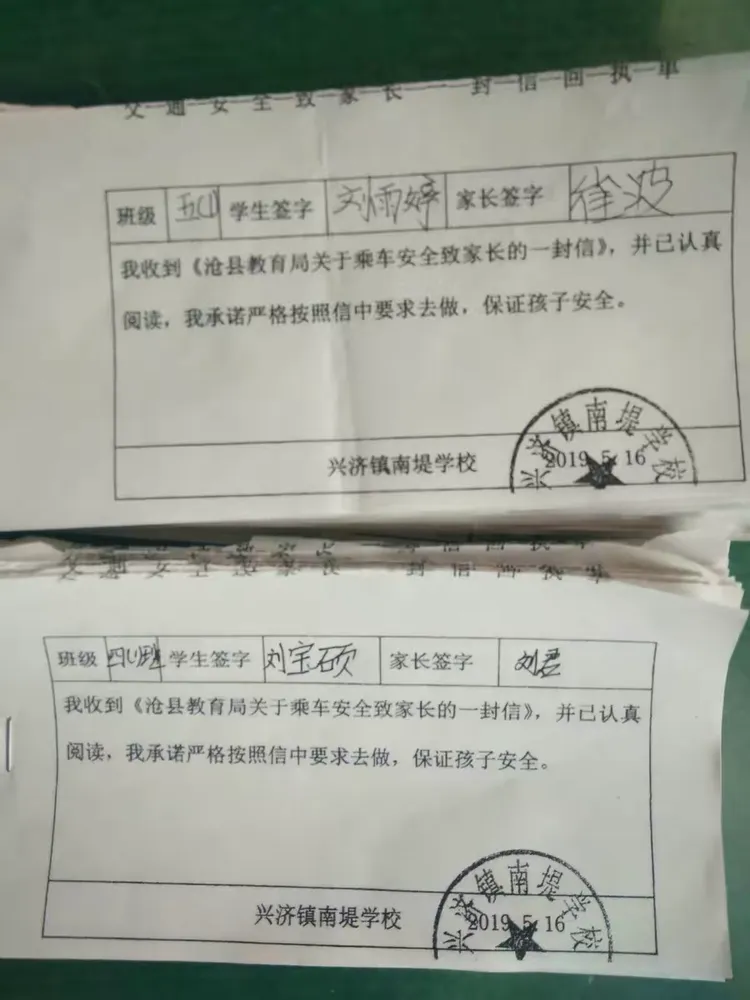 交通安全致家长一封信回执单
班级 五(1) 学生签字 刘雨婷 家长签字 徐波
我收到《沧县教育局关于乘车安全致家长的一封信》，并已认真
阅读，我承诺严格按照信中要求去做，保证孩子安全。
兴济镇南堤学校
兴济镇南堤学校
2019.5.16
交通安全致家长一封信回执单
班级 四(1)班 学生签字 刘宝硕 家长签字 刘君
我收到《沧县教育局关于乘车安全致家长的一封信》，并已认真
阅读，我承诺严格按照信中要求去做，保证孩子安全。
兴济镇南堤学校
兴济镇南堤学校
2019.5.16